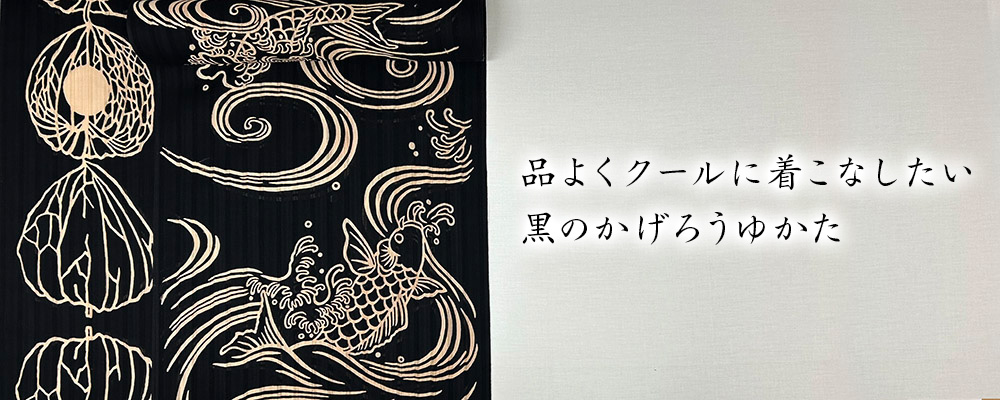 品よくクールに着こなしたい
黒のかげろうゆかた